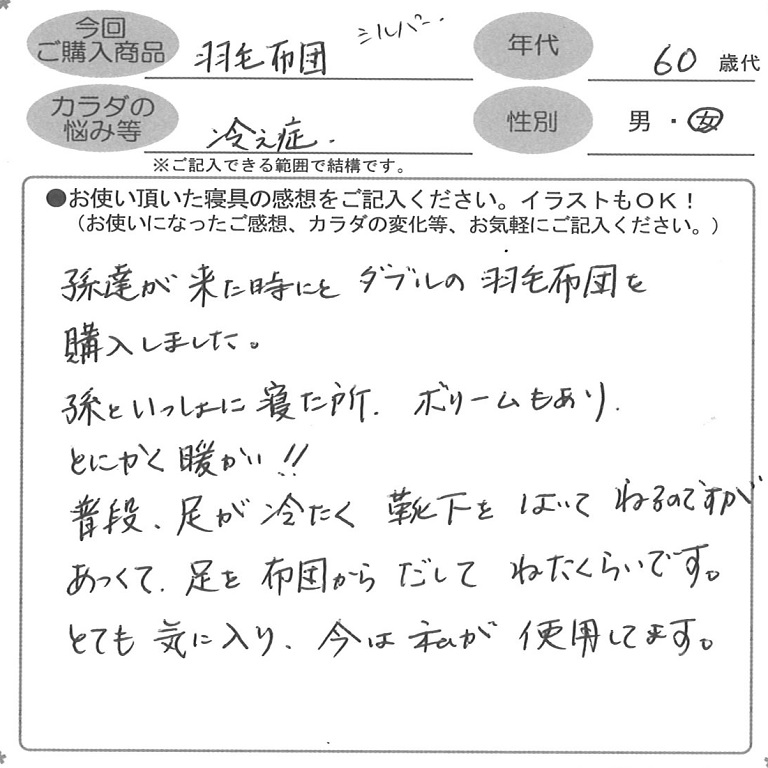 今回
ご購入商品 羽毛布団 シルバー.
年代 60 歳代
カラダの
悩み等 冷え症.
性別 男・女
※ご記入できる範囲で結構です。
●お使い頂いた寝具の感想をご記入ください。イラストもOK！
（お使いになったご感想、カラダの変化等、お気軽にご記入ください。）
孫達が来た時にと ダブルの 羽毛布団を
購入しました。
孫といっしょに寝た所. ボリームもあり.
とにかく暖かい!!
普段、足が冷たく 靴下を はいて ねるのですが
あつくて、足を布団から だして ねたくらいです。
とても気に入り、今は私が使用してます。